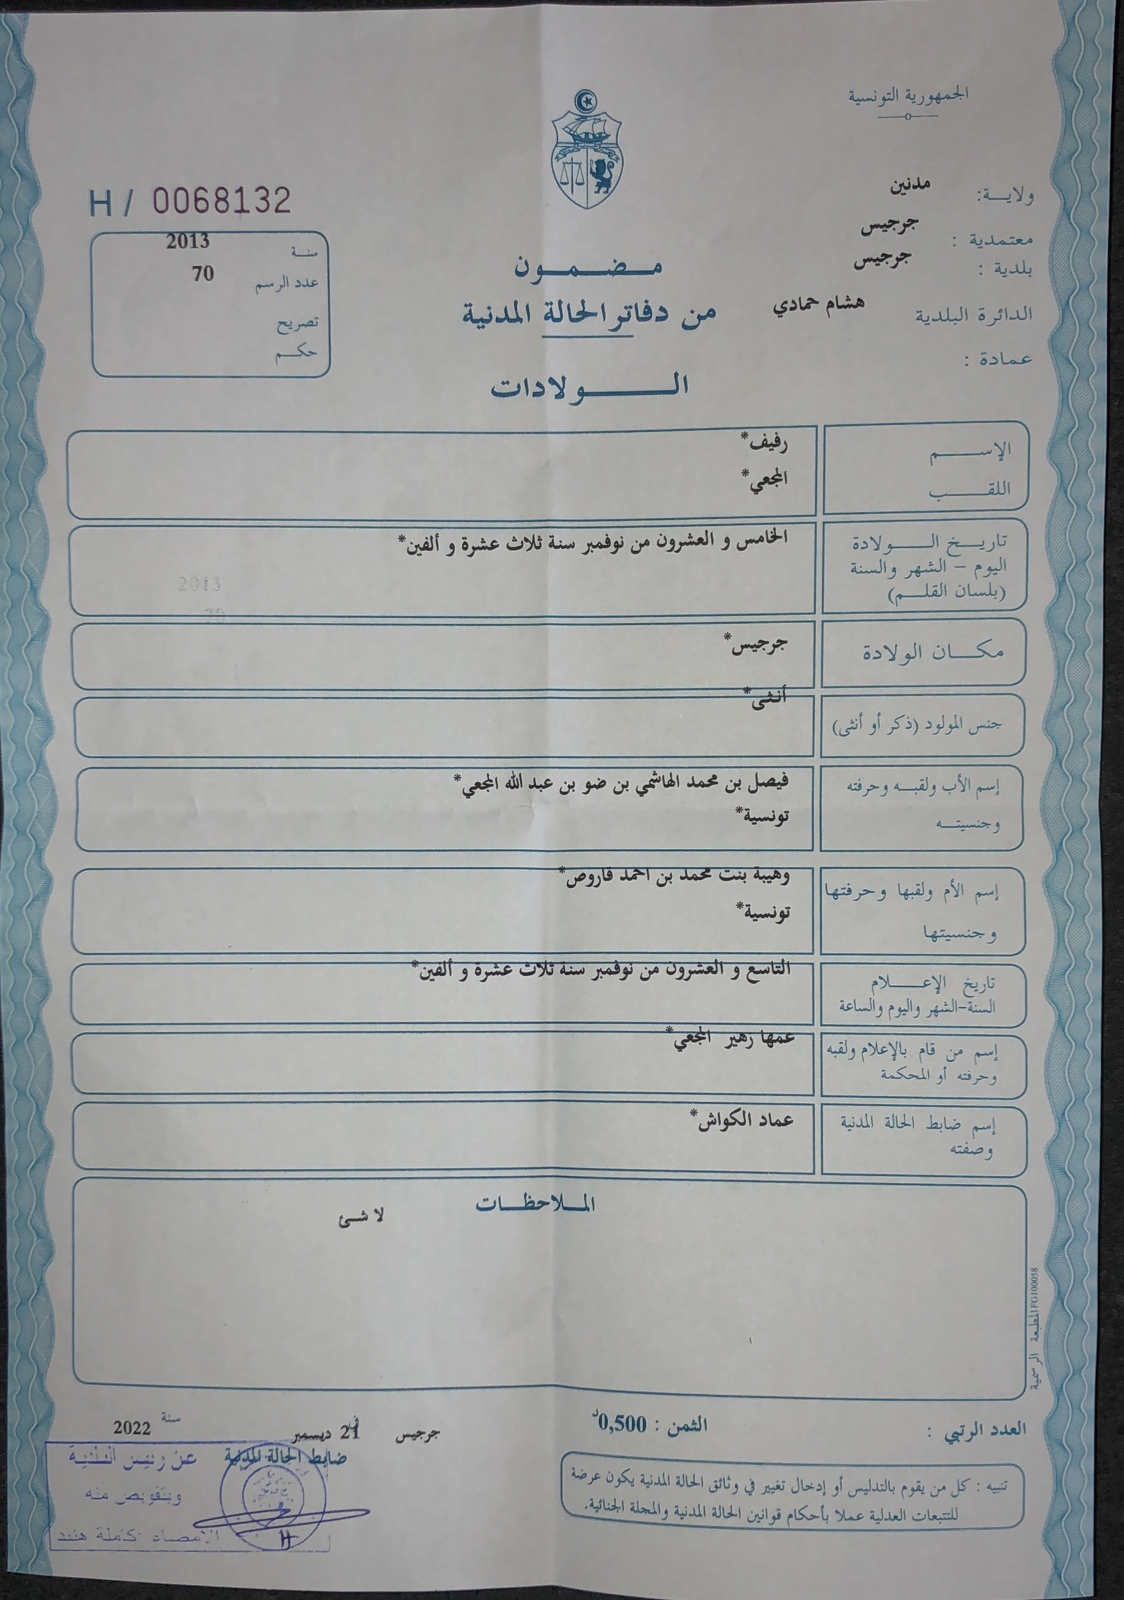 الجمهورية التونسية
ولايــة: مدنين
معتمدية : جرجيس
بلدية : جرجيس
الدائرة البلدية هشام حمادي
عمادة :
H / 0068132
سنـة 2013
عدد الرسم 70
تصريح
حكـم
مـضـمـون
من دفاتر الحالة المدنية
الـــولادات
الإســـم رفيف*
اللقـــب المجعي*
تاريـخ الـــولادة
اليوم – الشهر والسنة
(بلسان القلـم)
الخامس و العشرون من نوفمبر سنة ثلاث عشرة و ألفين*
2013
70
مكـان الولادة جرجيس*
جنس المولود (ذكر أو أنثى) أنثى*
إسم الأب ولقبـه وحرفته
وجنسيتـه
فيصل بن محمد الهاشمي بن ضو بن عبد الله المجعي*
تونسية*
إسم الأم ولقبها وحرفتها
وجنسيتها
وهيبة بنت محمد بن احمد قاروص*
تونسية*
تاريخ الإعـــلام
السنة-الشهر واليوم والساعة
التاسع و العشرون من نوفمبر سنة ثلاث عشرة و ألفين*
إسم من قام بالإعلام ولقبه
وحرفته أو المحكمة
عمها زهير المجعي*
إسم ضابط الحالة المدنية
وصفته
عماد الكواش*
المـلاحظـات
لا شئ
المطبعة الرسمية FG100058
العدد الرتبي :
الثمن : 0,500د
جرجيس في 21 ديسمبر سنة 2022
ضابط الحالة المدنية
عن رئيس البلدية
وبتفويض منه
الإمضاء: كاملة هنيد
تنبيه : كل من يقوم بالتدليس أو إدخال تغيير في وثائق الحالة المدنية يكون عرضة
للتتبعات العدلية عملا بأحكام قوانين الحالة المدنية والمجلة الجنائية.